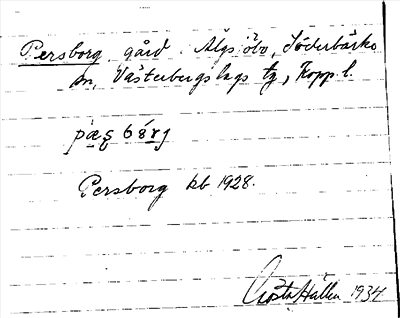 Persborg gård. Älgsjöbo, Söderbärke
sn, Västerbergslags tg, Kopp. l.
Persborg kb 1928.
Gösta Hallen 1934